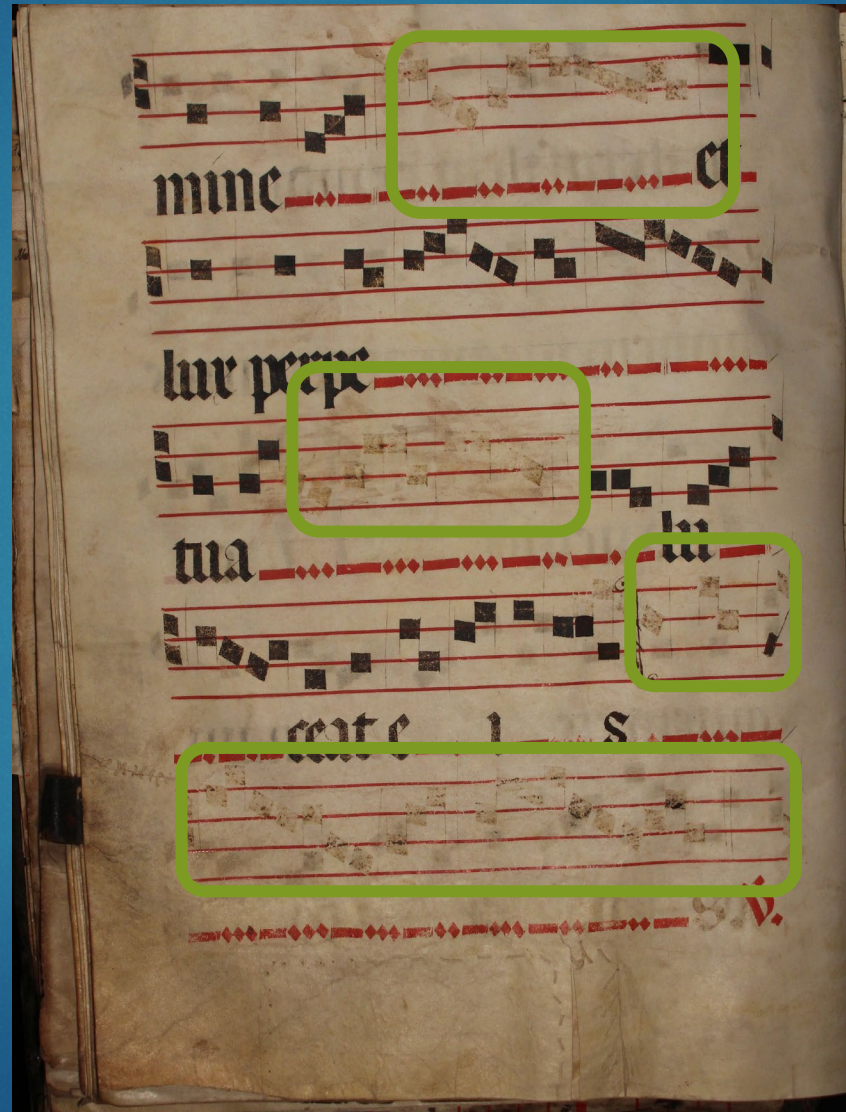 mine et
lux perpe
tua lu
ceat e i s
℣.